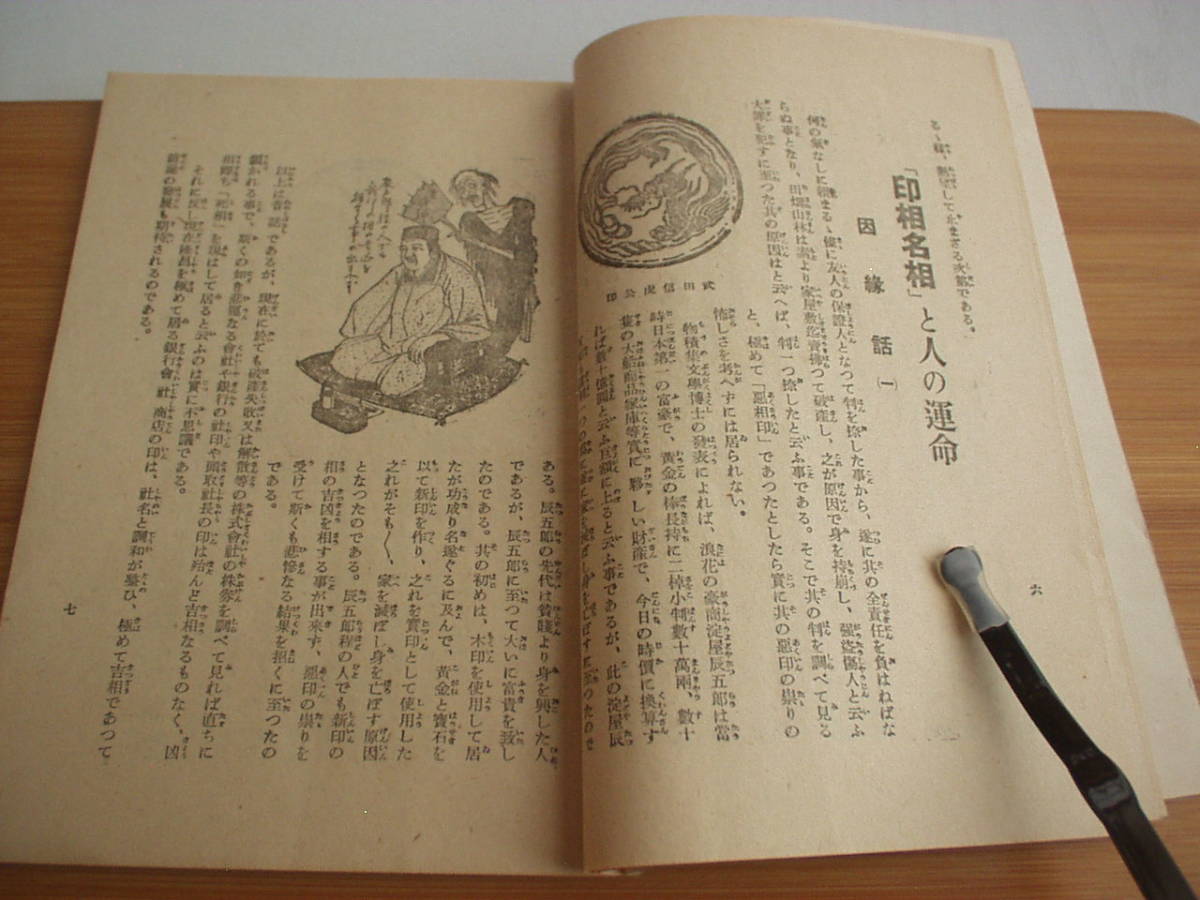 るゝ樣、熱望して止まざる次第である。
「印相名相」と人の運命
因緣話（一）
何の氣なしに賴まるゝ儘に友人の保證人となつて判を捺した事から、遂に其の全責任を負はねばな
らぬ事となり、田畑山林は素より家屋敷迄賣拂つて破產し、之が原因で身を持崩し、强盜傷人と云ふ
大罪を犯すに至つた其の原因はと云へば、判一つ捺したと云ふ事である。そこで其の判を調べて見る
と、極めて「惡相印」であつたとしたら實に其の惡印の祟りの
怖しさを考へずには居られない。
物積集文學博士の發表によれば、浪花の豪商淀屋辰五郎は當
時日本第一の富豪で、黃金の棒長持に二棹小判數十萬兩、數十
隻の大船商品倉庫等實に夥しい財產で、今日の時價に換算す
れば數十億圓と云ふ巨額に上ると云ふ事であるが、此の淀屋辰
武田信虎公印
六
ある。辰五郎の先代は貧賤より身を興した人
であるが、辰五郎に至つて大いに富貴を致し
たのである。其の初めは、木印を使用して居
たが功成り名遂ぐるに及んで、黃金と寶石を
以て新印を作り、之れを實印として使用した
之れがそも〱、家を滅ぼし身を亡ぼす原因
となつたのである。辰五郎程の人でも新印の
相の吉凶を相する事が出來ず、惡印の祟りを
受けて斯くも悲慘なる結果を招くに至つたの
である。
以上は昔話であるが、現在に於ても破產失敗又は解散等の株式會社の株券を調べて見れば直ちに
頷かれる事で、斯くの如き悲運なる會社や銀行の社印や頭取社長の印は殆んど吉相なるものなく、凶
相卽ち「死相」を現はして居ると云ふのは實に不思議である。
それに反し現在隆昌を極めて居る銀行會社商店の印は、社名と調和が整ひ、極めて吉相であつて
將來の發展も期待されるのである。
七